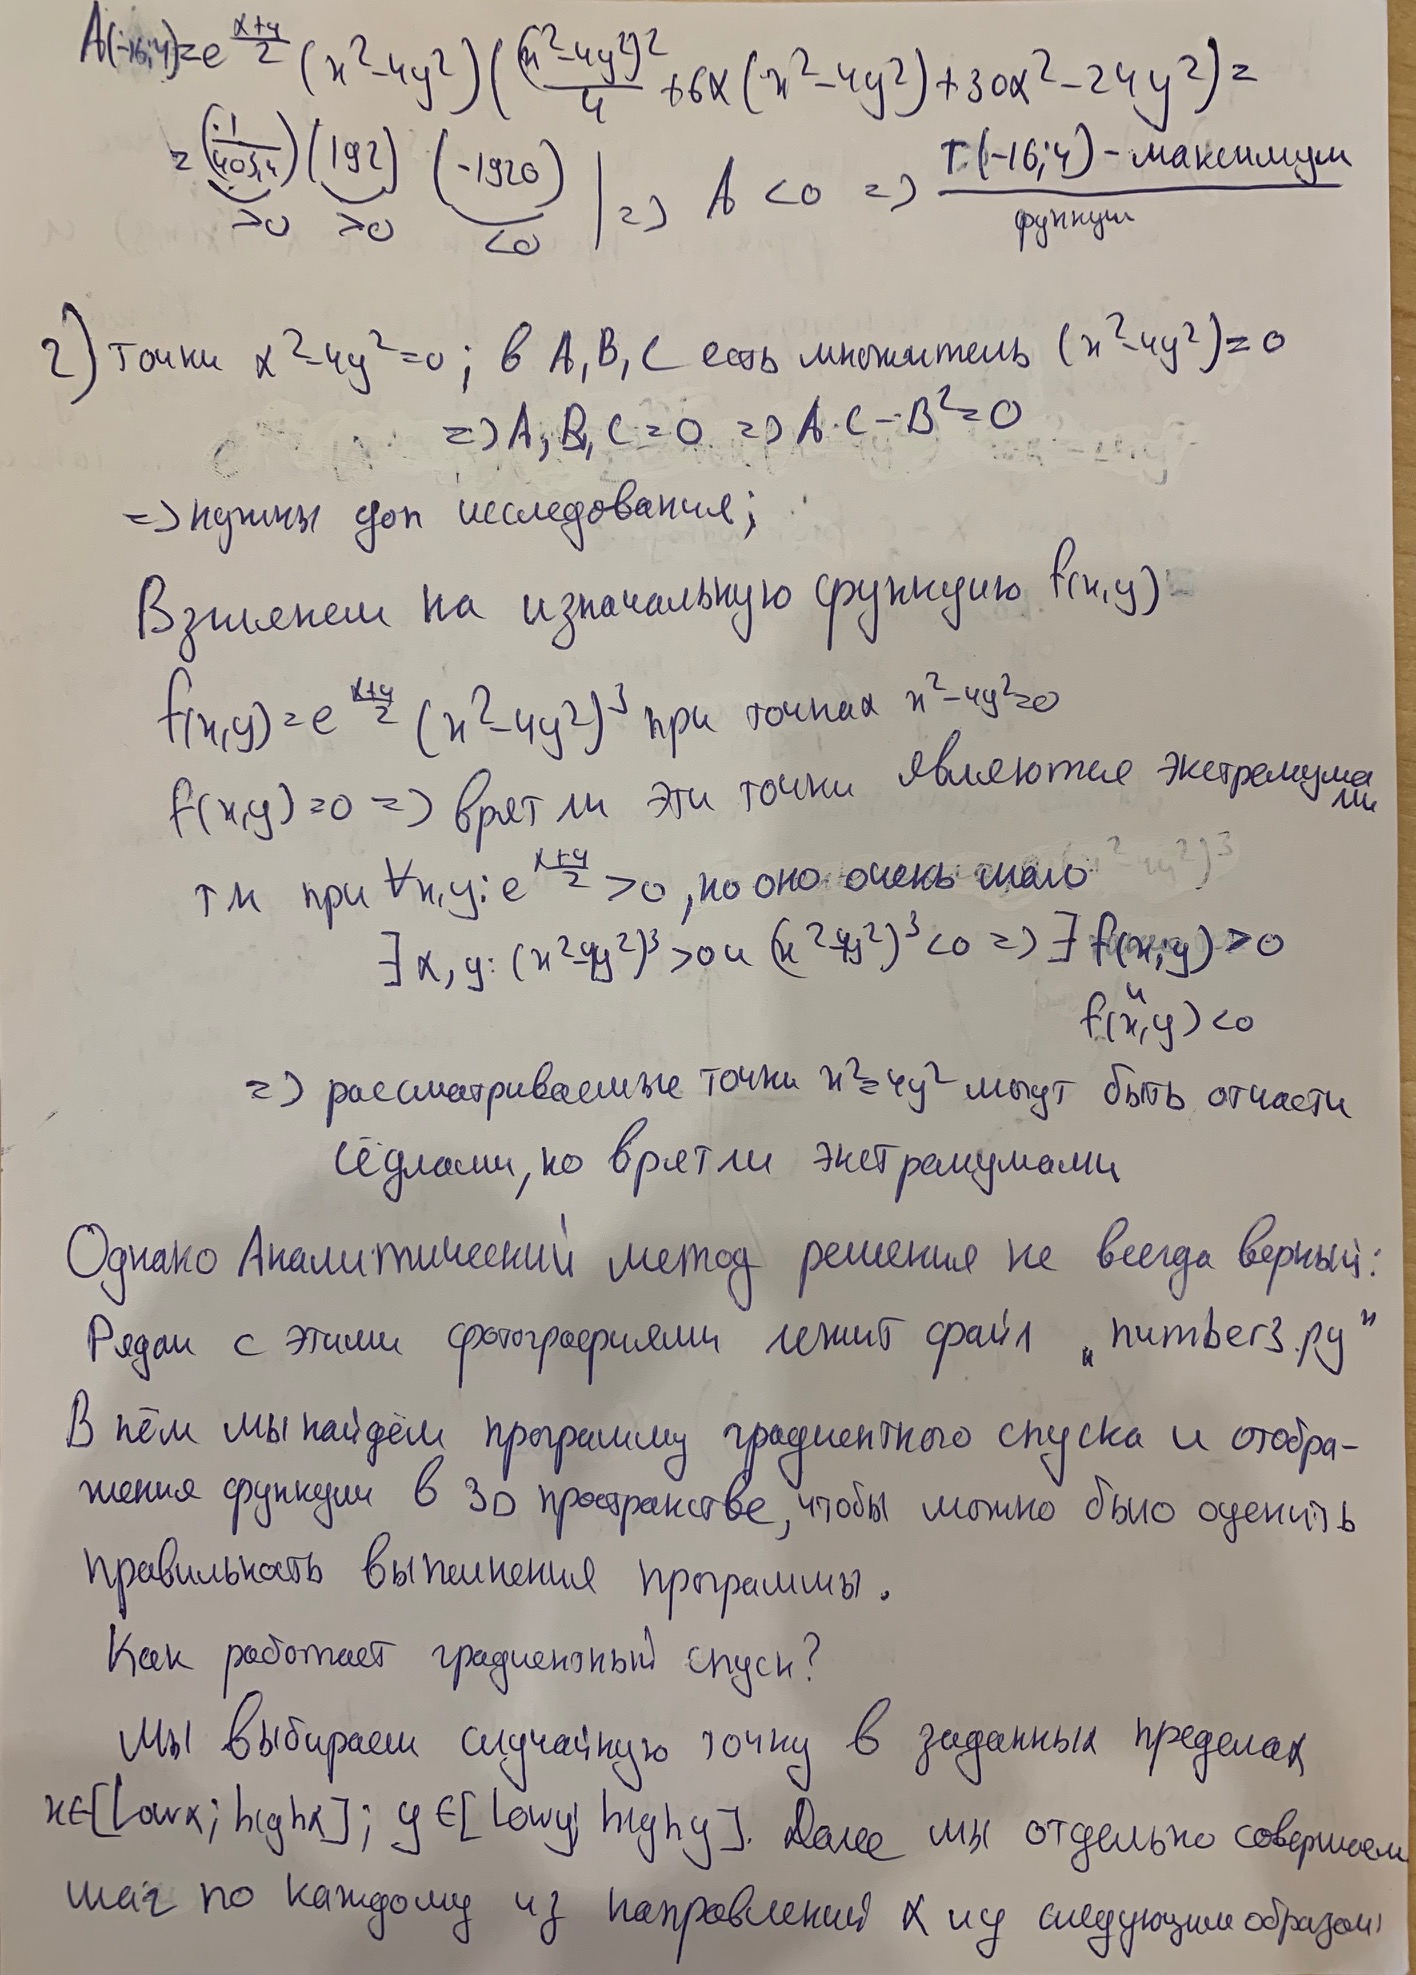 A(-16;4)=e^{\frac{x+y}{2}}(x²-4y²)(\frac{(x²-4y²)²}{4}+6x(x²-4y²)+30x²-24y²)=
=(\frac{1}{403,4})(192)(-1920) | => A<0 => т.(-16;4)-максимум
>0 >0 <0 функции
2) точки x²-4y²=0; в A,B,C есть множитель (x²-4y²)=0
=>A,B,C=0 => A·C-B²=0
=> нужны доп исследования;
Взглянем на изначальную функцию f(x,y)
f(x,y)=e^{\frac{x+y}{2}}(x²-4y²)³ при точках x²-4y²=0
f(x,y)=0 => врят ли эти точки являются экстремумами
тк при ∀x,y: e^{\frac{x+y}{2}}>0, но оно очень мало
∃x,y: (x²-4y²)³>0 и (x²-4y²)³<0 => ∃ f(x;y)>0
и
f(x,y)<0
=> рассматриваемые точки x²=4y² могут быть отчасти
сёдлами, но врятли экстремумами
Однако Аналитический метод решения не всегда верный:
Рядом с этими фотографиями лежит файл „number3.py"
В нём мы найдём программу градиентного спуска и отобра-
жения функции в 3D пространстве, чтобы можно было оценить
правильность выполнения программы.
Как работает градиентный спуск?
Мы выбираем случайную точку в заданных пределах
x∈[lowx; highx]; y∈[lowy; highy]. Далее мы отдельно совершаем
шаг по каждому из направлений x и y следующим образом: